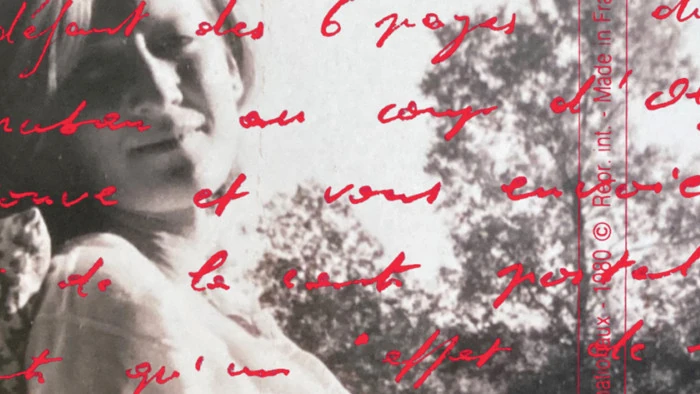 défaut des 6 pages du
ruban au coup d'
ouve et vous envoie
de la carte postal
qu'un effet de
nationaux - 1980 © Repr. int. - Made in Fra